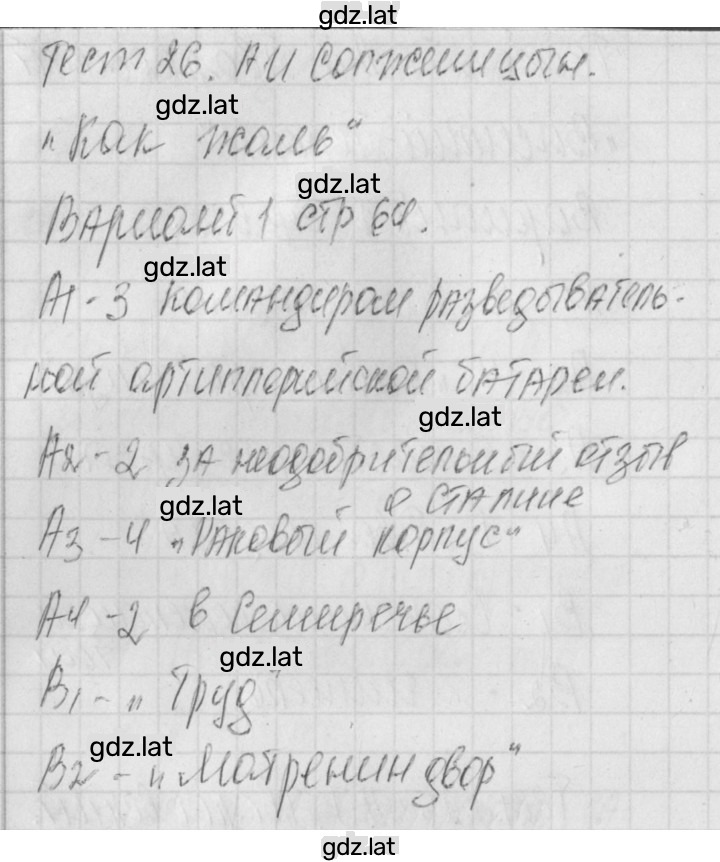 gdz.lat
Тест 26. А И Солженицын.
gdz.lat
"Как жаль"
gdz.lat
Вариант 1 стр 64.
gdz.lat
А1-3 командиром разведыватель-
ной артиллерийской батареи.
gdz.lat
А2-2 за неодобрительный отзыв
о Сталине
gdz.lat
А3-4 "Раковый корпус"
А4-2 в Семиречье
gdz.lat
В1-"Труд"
gdz.lat
В2-"Матренин двор"
gdz.lat